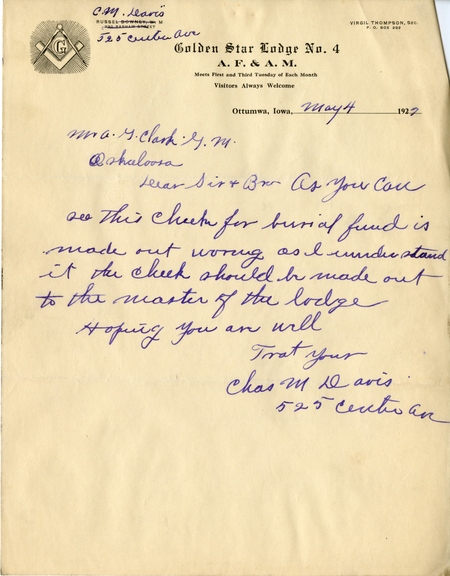 C.M. Davis
RUSSEL DOWNEY, W. M
525 Center Ave
VIRGIL THOMPSON, SEC.
P. O. BOX 222
G
Golden Star Lodge No. 4
A. F. & A. M.
Meets First and Third Tuesday of Each Month
Visitors Always Welcome
Ottumwa, Iowa, May 4 1922
Mr A. G. Clark G. M.
Oskaloosa
Dear Sir & Bro As You Can
see this Check for burial fund is
made out worong as I uunderstand
it the Check should be made out
to the master of the lodge
Hoping You are well
Trat Your
Chas M Davis
525 Center Ave